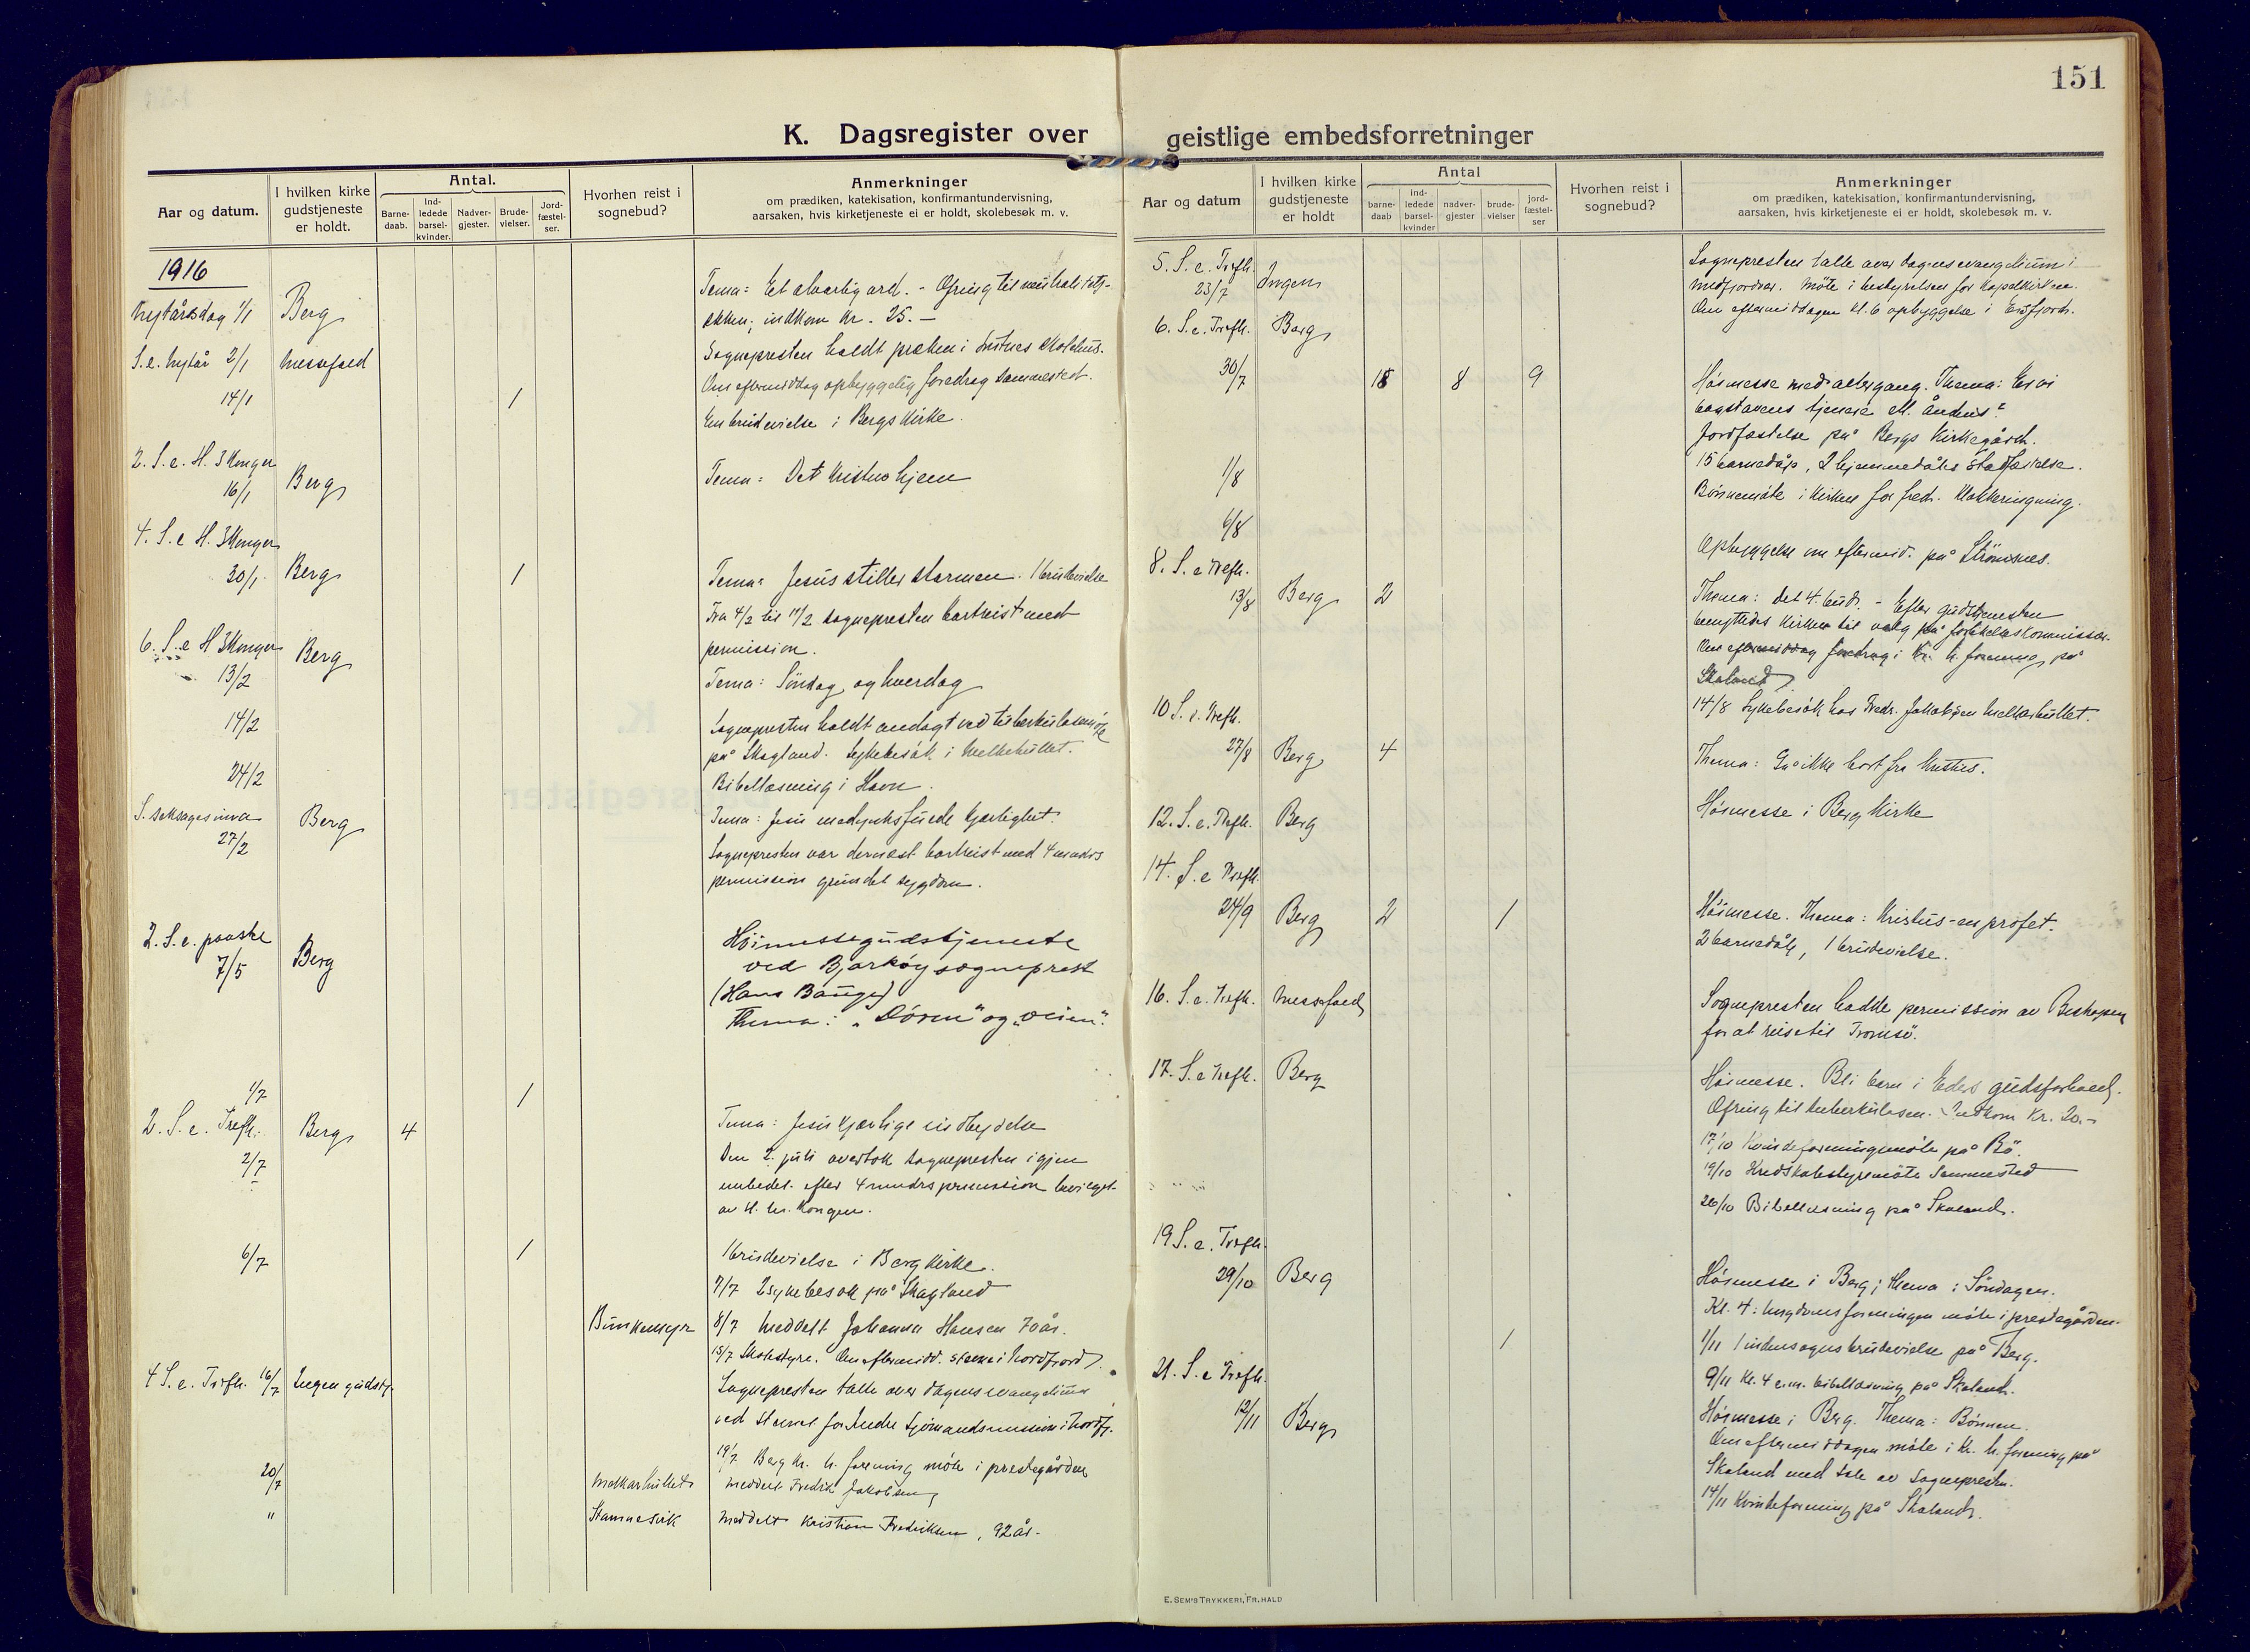 151
K. Dagsregister over geistlige embedsforretninger
Aar og datum.
I hvilken kirke gudstjeneste er holdt.
Antal.
Barne-daab.
Ind-ledede barsel-kvinder.
Nadver-gjester.
Brude-vielser.
Jord-fæstel-ser.
Hvorhen reist i sognebud?
Anmerkninger
om prædiken, katekisation, konfirmantundervisning,
aarsaken, hvis kirketjeneste ei er holdt, skolebesøk m. v.
1916
Nytårsdag 1/1 Berg
Tema: Et alvorlig ord. - Ofring til
indkom Kr. 25.—
S. e. Nytår 2/1 Messefald
Sognepresten holdt præken i skolehus.
Om eftermiddag opbyggelig foredrag sammested.
14/1 1 En brudevielse i Bergs Kirke.
2. S. e. H. 3 Konger
16/1 Berg Tema: Det kristne hjem
4. S. e H. 3 Konger
30/1 Berg 1 Tema: Jesus stiller stormen. 1 brudevielse
Fra 4/2 til 11/2 sognepresten bortreist med
permission.
6. S. e H 3 Konger
13/2 Berg Tema: Söndag og hverdag
14/2 Sognepresten holdt andagt ved tuberkulosemöte
på Skagland. Sykebesök i Melkehullet.
24/2 Bibellæsning i Havn.
S. seksagesima
27/2 Berg Tema: Jesu medynksfulde kjærlighet.
Sognepresten var dernæst bortreist med 4 mndrs
permission grundet sygdom.
2. S. e. paaske
7/5 Berg Höimessegudstjeneste
ved Bjarköy sogneprest
(Hans Bauge)
Thema: „Dören” og „veien”.
1/7 1
2. S. e. Trefh.
2/7 Berg 4 Tema: Jesu kjærlige indbydelse
Den 2. juli overtok sognepresten igjen
embedet efter 4 mndrs permission bevilget
av H. M. Kongen.
6/7 1 1 brudevielse i Berg Kirke.
7/7 2 sykebesök på Skagland
Bunkemyr 8/7 Meddelt Johanna Hansen 70 år.
15/7 Skolestyre. Om eftermidd. stevne i Nordfjord.
4 S. e. Trefh. 16/7 Ingen gudstj.
Sognepresten talte over dagens evangelium
ved stevnet for Indre Sjömandsmission i Nordfj.
19/7 Berg Kr. U. forening möte i prestegården
20/7 Melkarhullet Meddelt Fredrik Jakobsen
" Stamnesvik Meddelt Kristian Fredriksen, 92 år.
Aar og datum
I hvilken kirke gudstjeneste er holdt
Antal
barne-daab
ind-ledede barsel-kvinder
nadver-gjester
brude-vielser
jord-fæstel-ser
Hvorhen reist i sognebud?
Anmerkninger
om prædiken, katekisation, konfirmantundervisning,
aarsaken, hvis kirketjeneste ei er holdt, skolebesøk m. v.
5. S. e. Trefh.
23/7 Ingen
Sognepresten talte over dagens evangelium i
Medfjordvær. Möte i bestyrelsen for Kapelkirken.
Om eftermiddagen kl. 6 opbyggelse i Ersfjord.
6. S. e. Trefh. Berg
30/7 15 8 9 Höimesse med altergang. Thema: Er vi
bogstavens tjenere ell. Åndens?
Jordfæstelse på Bergs Kirkegård.
15 barnedåp, 2 hjemmedåbs stadfæstelse.
1/8 Bönnemöte i Kirken for fred. Klokkeringning.
6/8 Opbyggelse om eftermid. på Strömsnes.
8. S. e Trefh.
13/8 Berg 2 Thema: Det 4. bud. - Efter gudstjenesten
benyttedes Kirken til valg på forlikelseskommissær.
Om eftermiddag foredrag i Kr. U. forening på
Skaland.
14/8 Sykebesök hos Fredr. Jakobsen Melkarhullet.
10 S. e. Trefh.
27/8 Berg 4 Thema: Gå ikke bort fra Kristus.
12. S. e. Trefh. Berg Höimesse i Berg Kirke
14. S. e Trefh.
24/9 Berg 2 1 Höimesse. Thema: Kristus - en profet.
2 barnedåb, 1 brudevielse.
16. S. e. Trefh. Messefald
Sognepresten hadde permission av Biskopen
for at reise til Tromsö.
17. S. e Trefh. Berg
Höimesse. Bli barn i Eders gudsforhold.
Ofring til tuberkulosen. Indkom Kr. 20.-
17/10 Kvindeforeningsmöte på Bö.
19/10 Kredskolestyremöte Sammested
26/10 Bibellæsning på Skaland.
19 S. e. Trefh.
29/10 Berg Höimesse i Berg; thema: Söndagen.
Kl. 4: Ungdomsforeningen möte i prestegården.
1 1/11 1 indensogns brudevielse på Berg.
9/11 Kl. 4 e.m. bibellæsning på Skaland.
21. S. e Trefh.
12/11 Berg Höimesse i Berg. Thema: Bönnen.
Om eftermiddagen möte i Kr. U. forening på
Skaland med tale av Sognepresten.
14/11 Kvindeforening på Skaland.
E. SEM'S TRYKKERI, FR.HALD